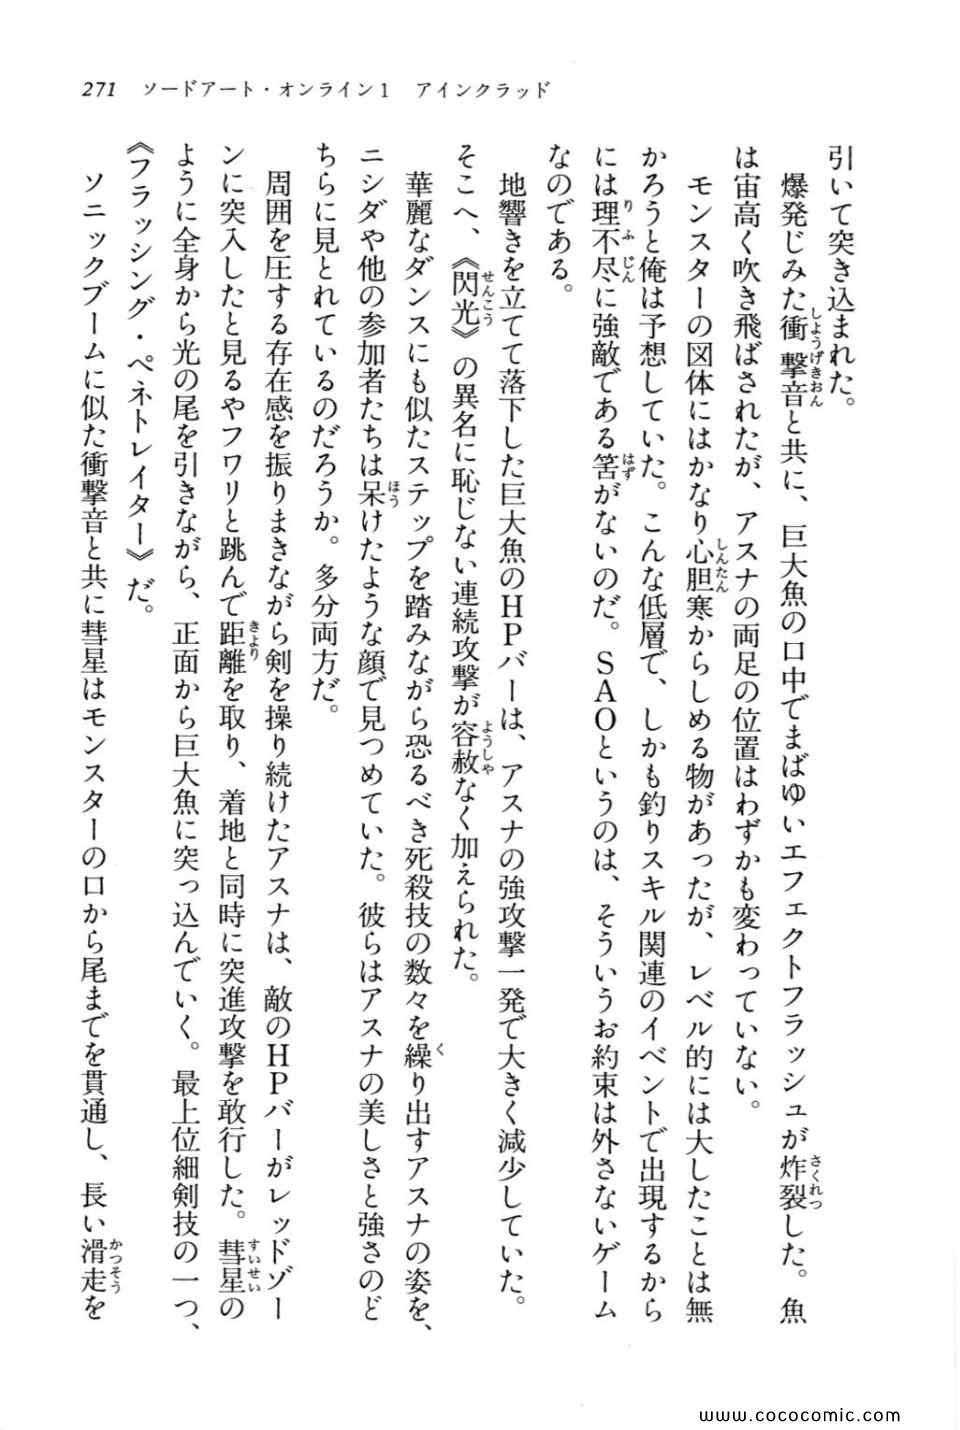 271　ソードアート・オンライン1　アインクラッド
引いて突き込まれた。
　爆発じみた衝撃音と共に、巨大魚の口中でまばゆいエフェクトフラッシュが炸裂した。魚
は宙高く吹き飛ばされたが、アスナの両足の位置はわずかも変わっていない。
　モンスターの図体にはかなり心胆寒からしめる物があったが、レベル的には大したことは無
かろうと俺は予想していた。こんな低層で、しかも釣りスキル関連のイベントで出現するから
には理不尽に強敵である筈がないのだ。ＳＡＯというのは、そういうお約束は外さないゲーム
なのである。
　地響きを立てて落下した巨大魚のＨＰバーは、アスナの強攻撃一発で大きく減少していた。
そこへ、《閃光》の異名に恥じない連続攻撃が容赦なく加えられた。
　華麗なダンスにも似たステップを踏みながら恐るべき死殺技の数々を繰り出すアスナの姿を、
ニシダや他の参加者たちは呆けたような顔で見つめていた。彼らはアスナの美しさと強さのど
ちらに見とれているのだろうか。多分両方だ。
　周囲を圧する存在感を振りまきながら剣を操り続けたアスナは、敵のＨＰバーがレッドゾー
ンに突入したと見るやフワリと跳んで距離を取り、着地と同時に突進攻撃を敢行した。彗星の
ように全身から光の尾を引きながら、正面から巨大魚に突っ込んでいく。最上位細剣技の一つ、
《フラッシング・ペネトレイター》だ。
　ソニックブームに似た衝撃音と共に彗星はモンスターの口から尾までを貫通し、長い滑走を
www.cococomic.com